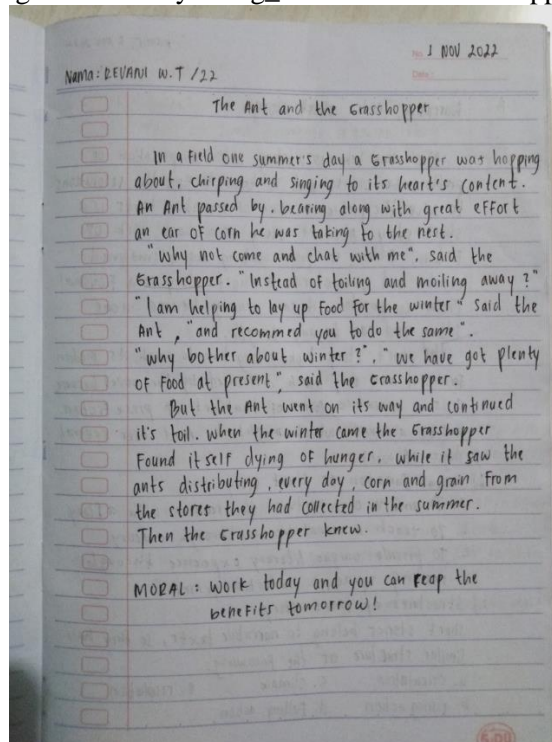 No 1 NOV 2022
Nama: REVANI W.T /22
Date:
The Ant and the Grasshopper
In a Field one summer's day a Grasshopper was hopping
about, chirping and singing to its heart's content.
An Ant passed by. bearing along with great effort
an ear of corn he was taking to the nest.
"why not come and chat with me", said the
Grasshopper. "Instead of toiling and moiling away?"
"I am helping to lay up food for the winter" said the
Ant, "and recommed you to do the same".
"why bother about winter?". "we have got plenty
of food at present", said the Grasshopper.
But the Ant went on its way and continued
it's toil. when the winter came the Grasshopper
Found it self dying of hunger, while it saw the
ants distributing, every day, corn and grain from
the stores they had collected in the summer.
Then the Grasshopper knew.
MORAL: work today and you can reap the
benefits tomorrow!